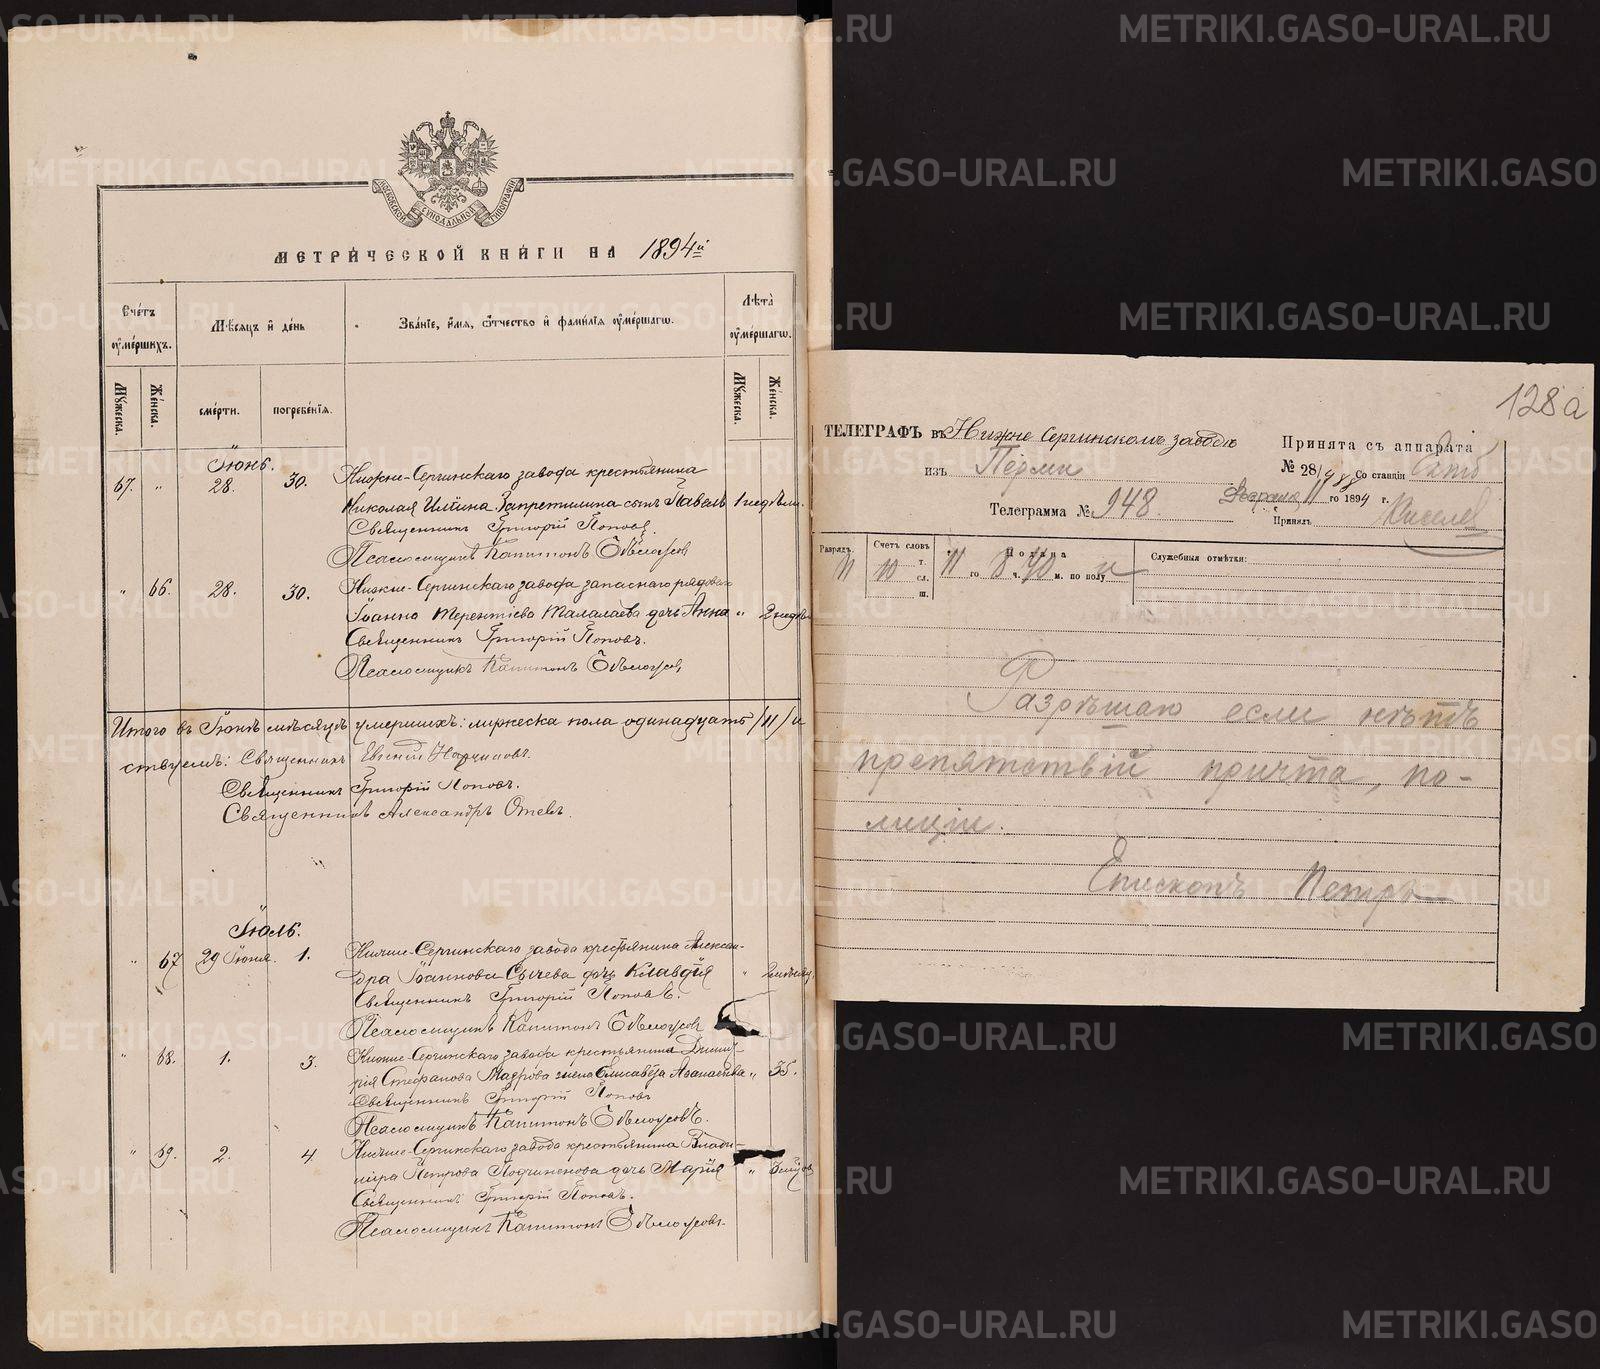 МОСКОВСКОЙ СУНОДАЛЬНОЙ ТИПОГРАФІИ
МЕТРИЧЕСКОЙ КНИГИ НА 1894й
Счетъ умершихъ.
Мѣсяцъ и день
Званіе, имя, отчество и фамилія умершаго.
Лѣта умершаго.
Мужеска.
Женска.
смерти.
погребенія.
Мужеска.
Женска.
Іюнь.
67. „ 28. 30. Нижне-Сергинскаго завода крестьянина
Николая Ильина Запретилина сынъ Павелъ 1 недѣли.
Священникъ Григорій Поповъ
Псаломщикъ Капитонъ Бѣлоусовъ
„ 66. 28. 30. Нижне-Сергинскаго завода запаснаго рядоваго
Іоанна Терентіева Талалаева дочь Анна „ 2 недѣль
Священникъ Григорій Поповъ.
Псаломщикъ Капитонъ Бѣлоусовъ
Итого въ Іюнѣ мѣсяцѣ умершихъ: мужеска пола одинадцать /11/ и
ствуемъ: Священникъ Евгеній
Священникъ Григорій Поповъ.
Священникъ Александръ
Іюль.
„ 67 29 Іюня. 1. Нижне-Сергинскаго завода крестьянина Алексан-
дра Іоаннова Сычева дочь Клавдія „ 2 мѣсяц
Священникъ Григорій Поповъ.
Псаломщикъ Капитонъ Бѣлоусовъ
„ 68. 1. 3. Нижне-Сергинскаго завода крестьянина Димит-
рія Стефанова Мазрова жена Елисавета Аѳанасьева „ 35.
Священникъ Григорій Поповъ
Псаломщикъ Капитонъ Бѣлоусовъ.
„ 69. 2. 4 Нижне-Сергинскаго завода крестьянина Влади-
міра Петрова Подчиненова дочь Марія „
Священникъ Григорій Поповъ.
Псаломщикъ Капитонъ Бѣлоусовъ.
128а
ТЕЛЕГРАФЪ въ Нижне Сергинскомъ заводѣ
Принята съ аппарата
изъ Перми
№ 28 Со станціи
Телеграмма № 948.
Февраля 11го 1894 г.
Принялъ Киселев
Разрядъ.
Счетъ словъ
Подана
Служебныя отмѣтки:
10 т. сл. ш.
11 го 8 ч. 40 м. по полу
Разрѣшаю если нѣтъ
препятствій причта, по-
лиціи.
Епископъ Петръ
METRIKI.GASO-URAL.RU